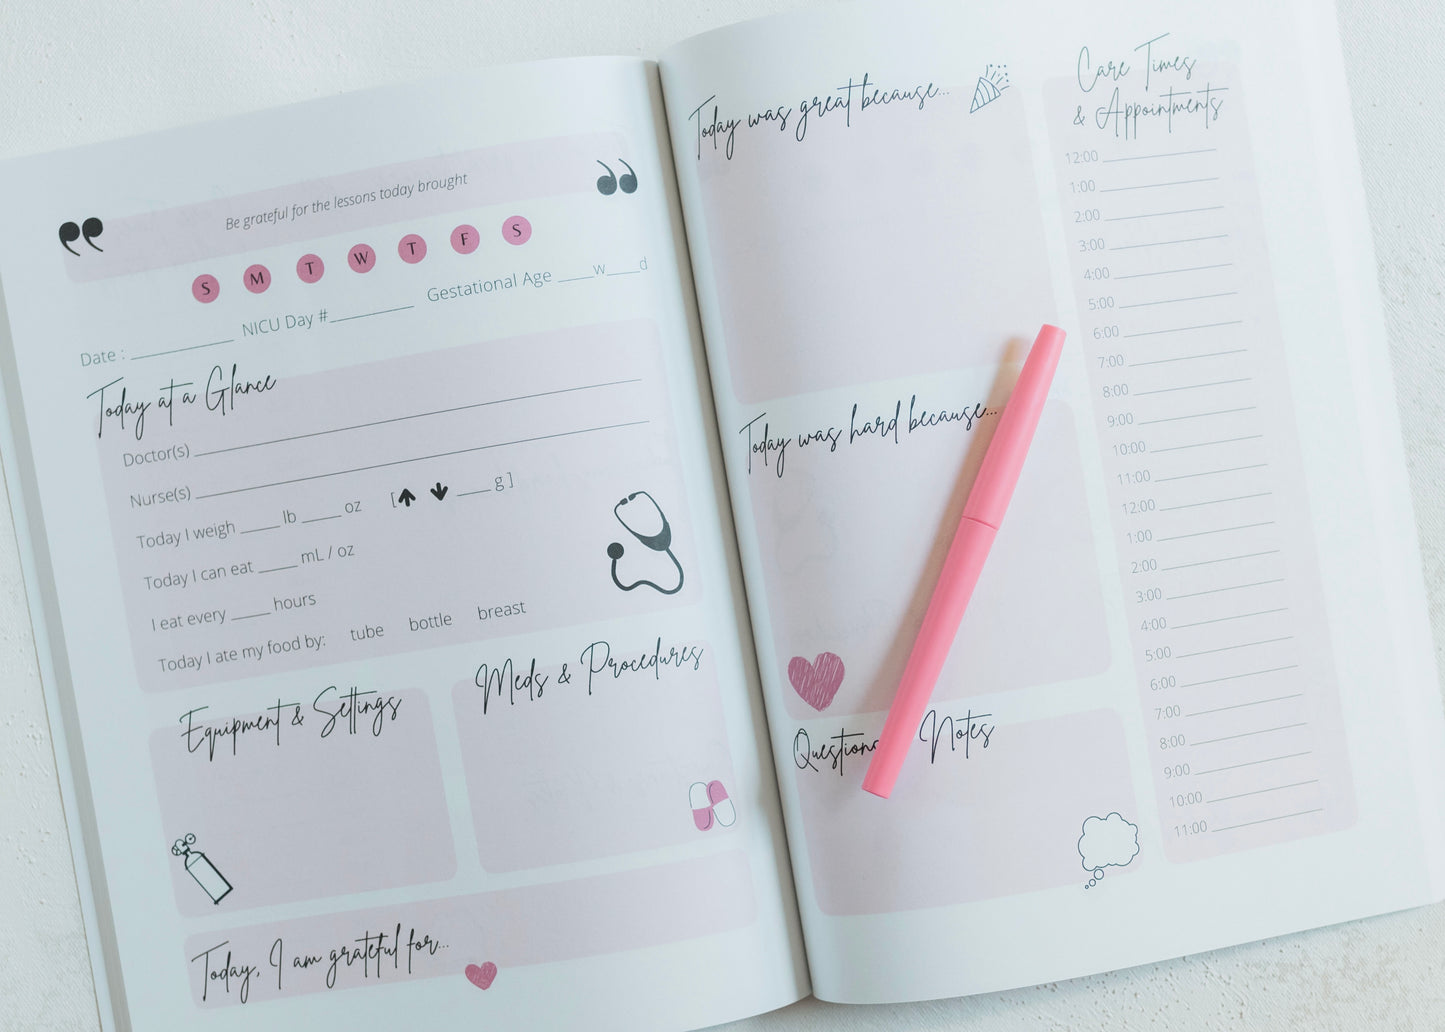 Be grateful for the lessons today brought
S M T W T F S
Date : ________ NICU Day #________ Gestational Age ____w____d
Today at a Glance
Doctor(s) ________
Nurse(s) ________
Today I weigh ____ lb ____ oz [↑ ↓ ____ g ]
Today I can eat ____ mL / oz
I eat every ____ hours
Today I ate my food by: tube bottle breast
Equipment & Settings
Meds & Procedures
Today, I am grateful for...
Today was great because...
Today was hard because...
Questions Notes
Care Times
& Appointments
12:00
1:00
2:00
3:00
4:00
5:00
6:00
7:00
8:00
9:00
10:00
11:00
12:00
1:00
2:00
3:00
4:00
5:00
6:00
7:00
8:00
9:00
10:00
11:00